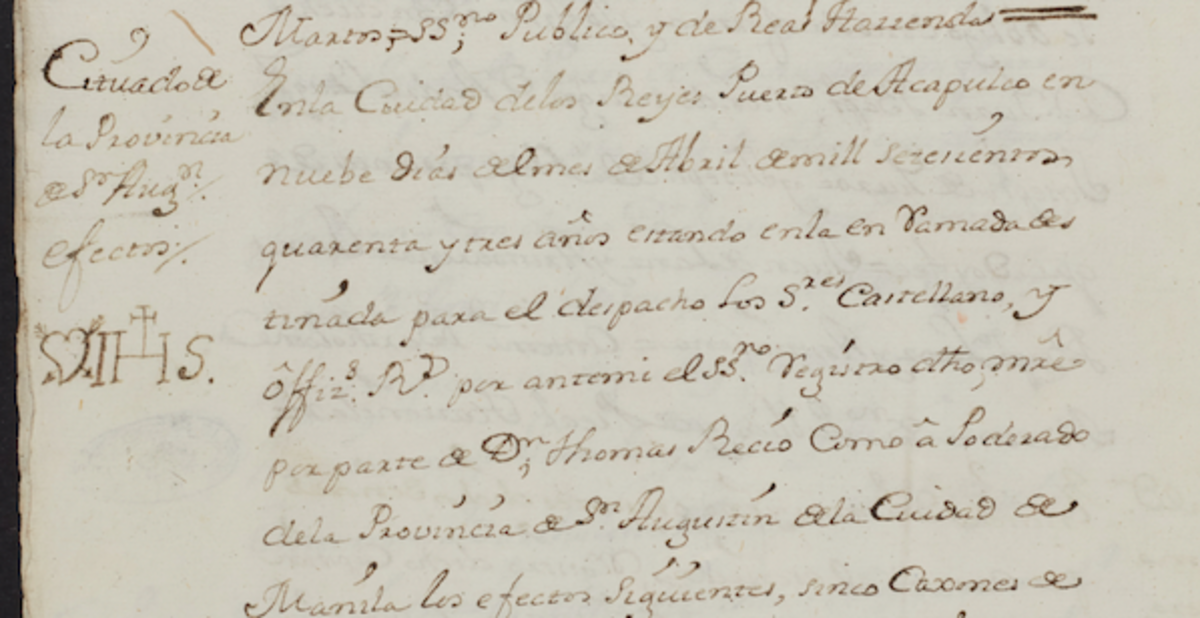 Cituado de
la Provincia
de Sn Augn./.
efectos./.
Martos, SSno Publico, y de Real Hazienda
En la Ciudad delos Reyes Puerto de Acapulco en
nuebe dias del mes de Abril de mill setesientos
quarenta y tres años estando enla en Ramada des
tinada para el despacho los Sres Castellano, y
offizs. Rs por antemi el SSno. Registro dho, mre
por parte de Dn Thomas Recio Como a Poderado
dela Provincia de Sn Augustin dela Ciudad de
Manila los efectos Siguientes, sinco Caxones de